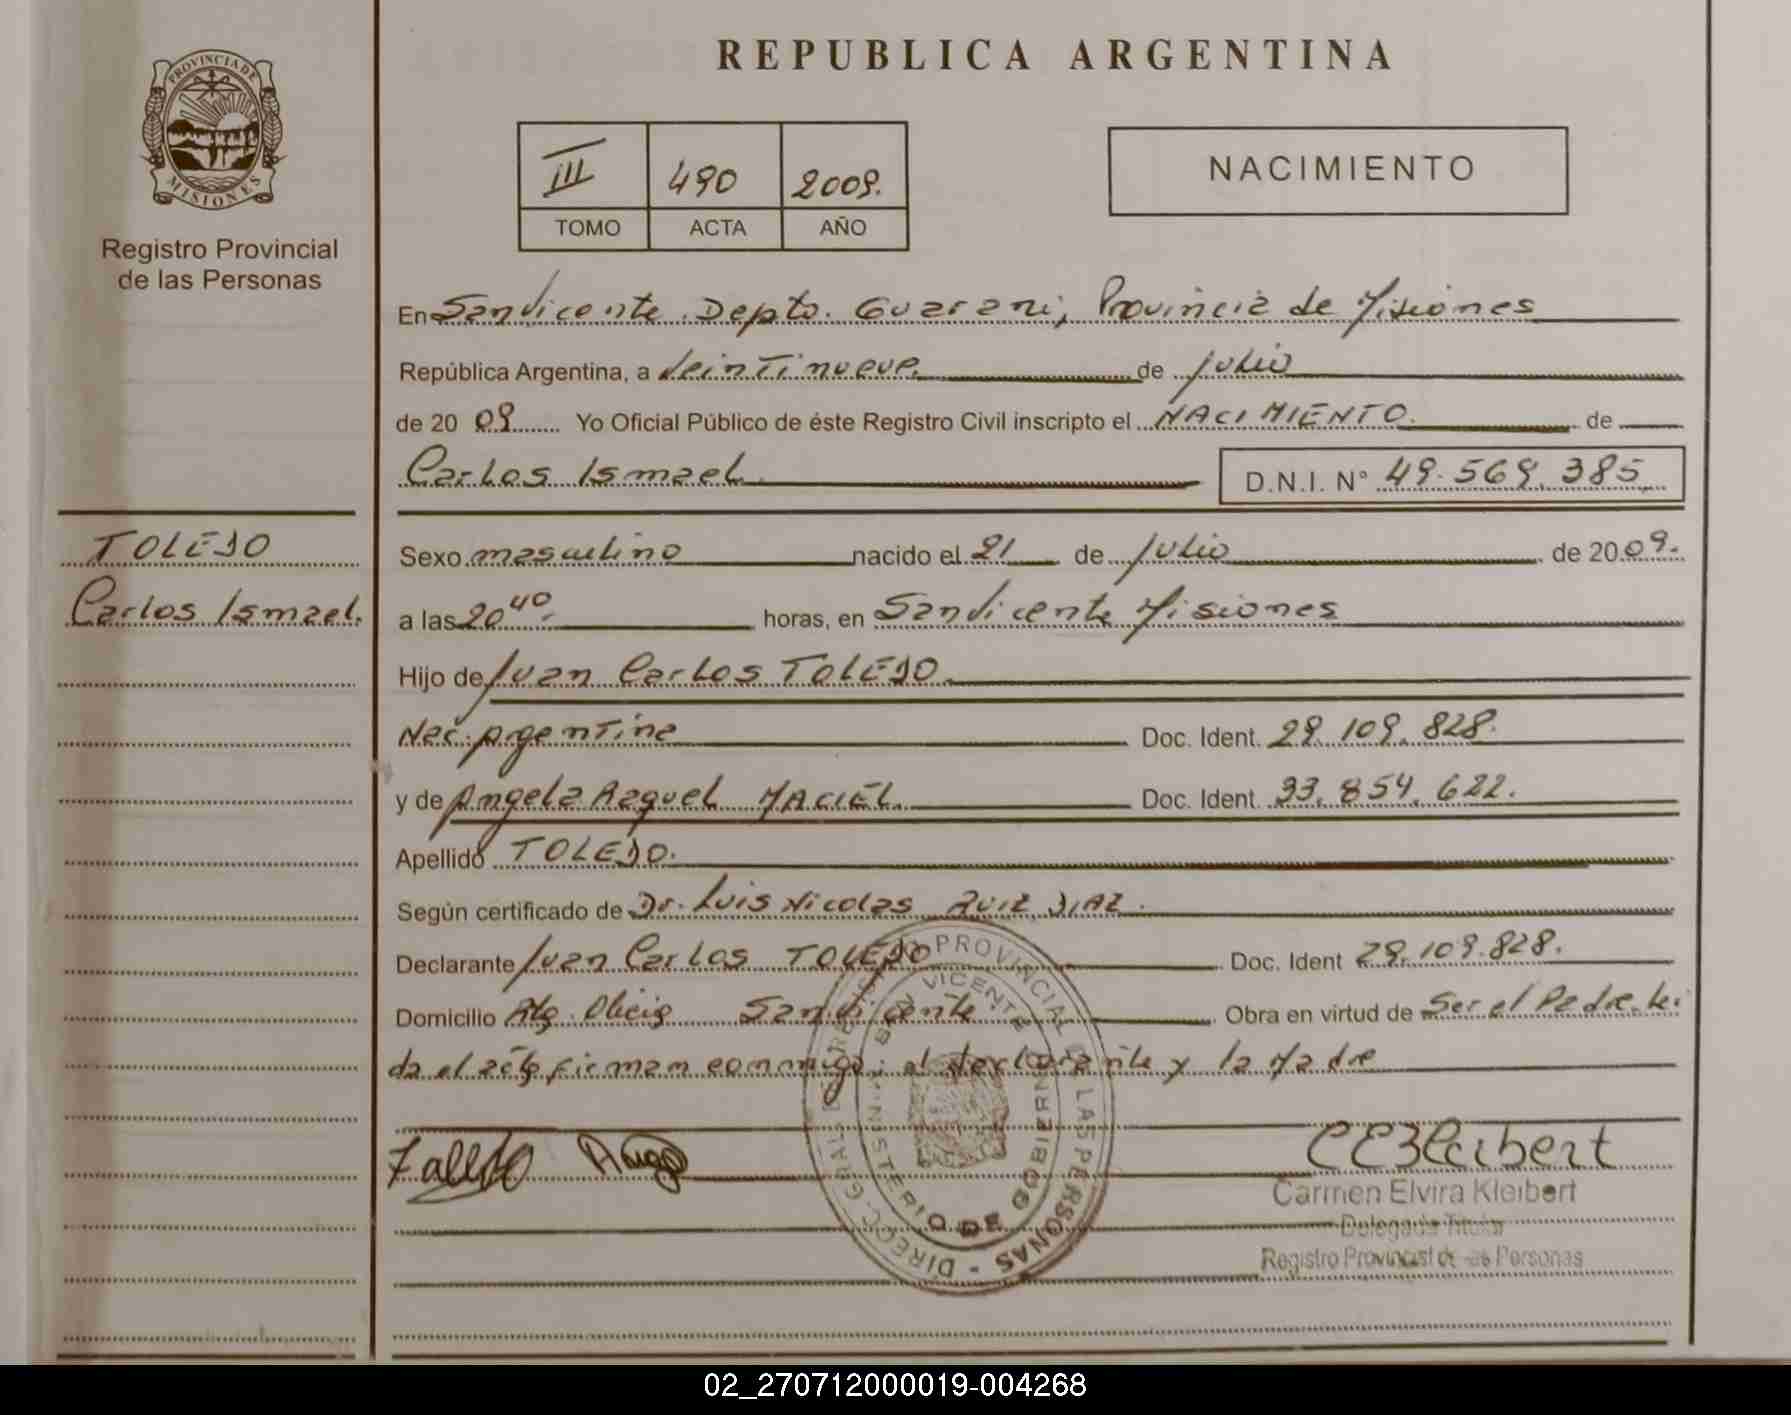 REPUBLICA ARGENTINA
PROVINCIA DE MISIONES
Registro Provincial
de las Personas
III 490 2009.
TOMO ACTA AÑO
NACIMIENTO
En San Vicente Depto. Guarani, Provincia de Misiones
República Argentina, a veintinueve de julio
de 20 09 Yo Oficial Público de éste Registro Civil inscripto el NACIMIENTO. de
Carlos Ismael. D.N.I. N° 49.569.385
TOLEDO
Carlos Ismael.
Sexo masculino nacido el 21 de julio de 2009.
a las 20 40 horas, en San Vicente Misiones
Hijo de Juan Carlos TOLEDO.
Nac. Argentina Doc. Ident. 29.109.828.
y de Angela Raquel MACIEL. Doc. Ident. 33.854.622.
Apellido TOLEDO.
Según certificado de Dr. Luis Nicolas RUIZ DIAZ.
Declarante Juan Carlos TOLEDO Doc. Ident 29.109.828.
Domicilio San Vicente Obra en virtud de Ser el Padre. Lei
da el acta firman conmigo; el declarante y la Madre
DIRECC. GRAL. REGISTRO PROVINCIAL DE LAS PERSONAS -
SAN VICENTE
MINISTERIO DE GOBIERNO
CEKleibert
Carmen Elvira Kleibert
Delegada Titular
Registro Provincial de las Personas
02_270712000019-004268